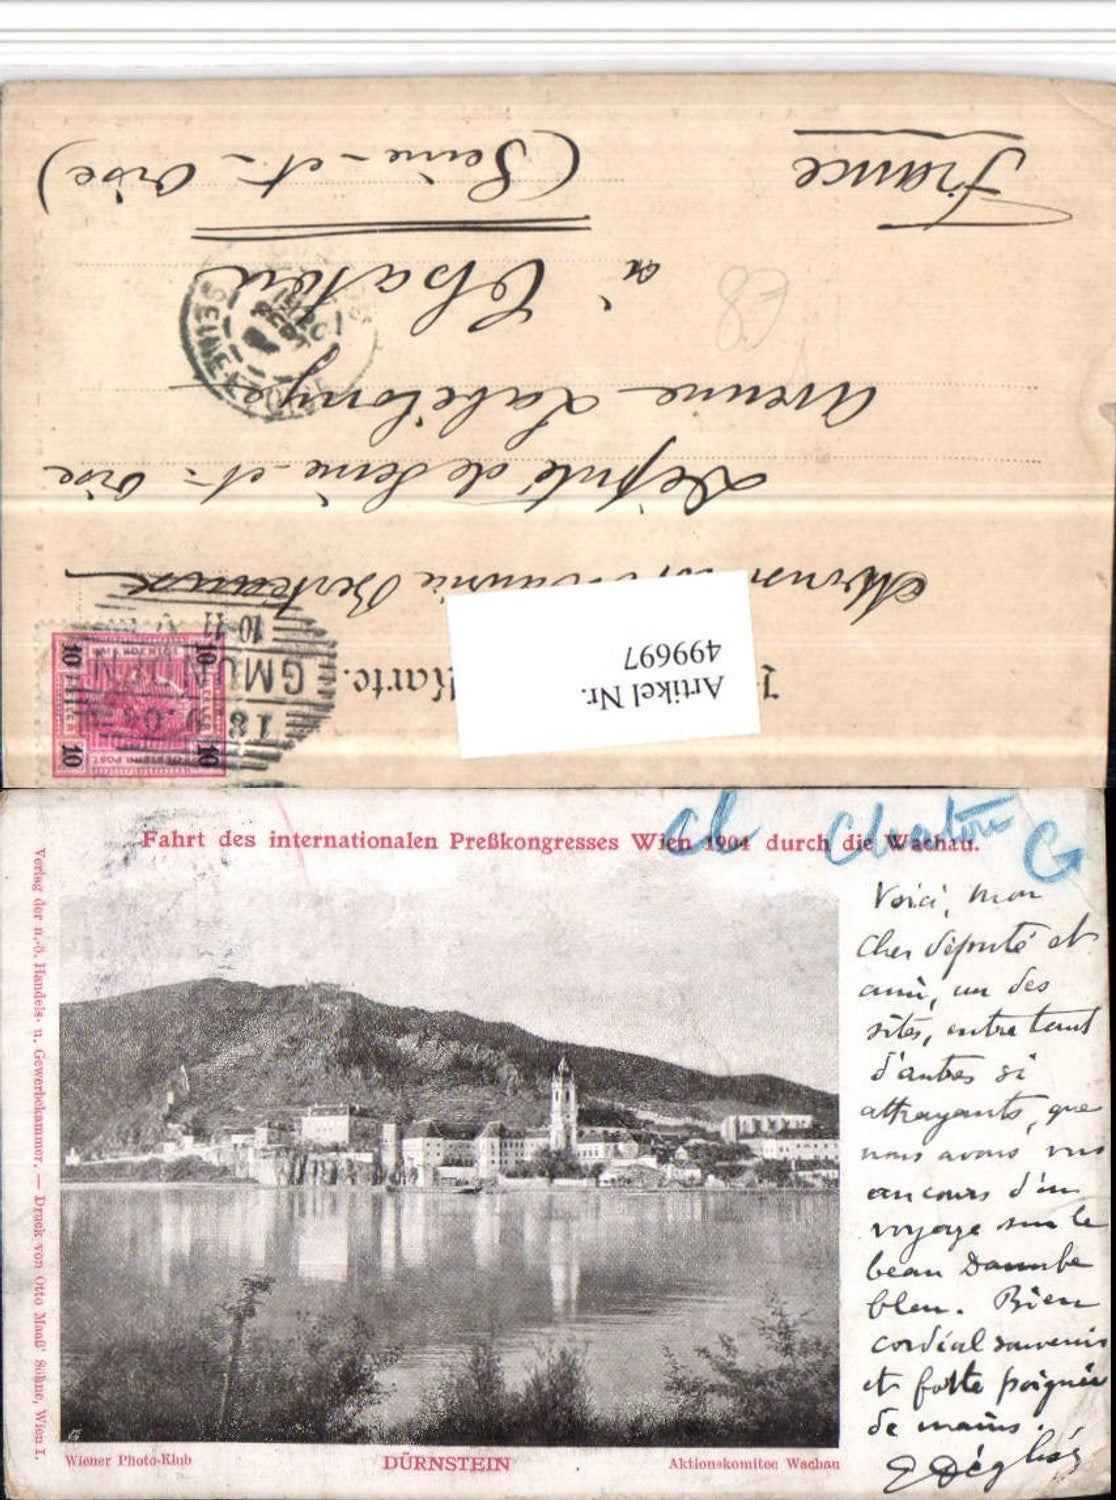 France
(Seine-et-Oise)
à Chatou
Avenue Labélonye
Député de Seine-et-Oise
Maurice Berteaux
Karte.
Artikel Nr.
499697
SEINE ET OISE
GMUNDEN
18 9
10-11
10 10
10 10
Cl Chatou G
Fahrt des internationalen Preßkongresses Wien 1904 durch die Wachau.
Verlag der n.-ö. Handels- u. Gewerbekammer. — Druck von Otto Maaß' Söhne, Wien I.
Voici, mon
cher député et
ami, un des
sites, entre tant
d'autres si
attrayants, que
nous avons vus
au cours d'un
voyage sur le
beau Danube
bleu. Bien
cordial souvenir
et forte poignée
de mains.
Wiener Photo-Klub
DÜRNSTEIN
Aktionskomitee Wachau